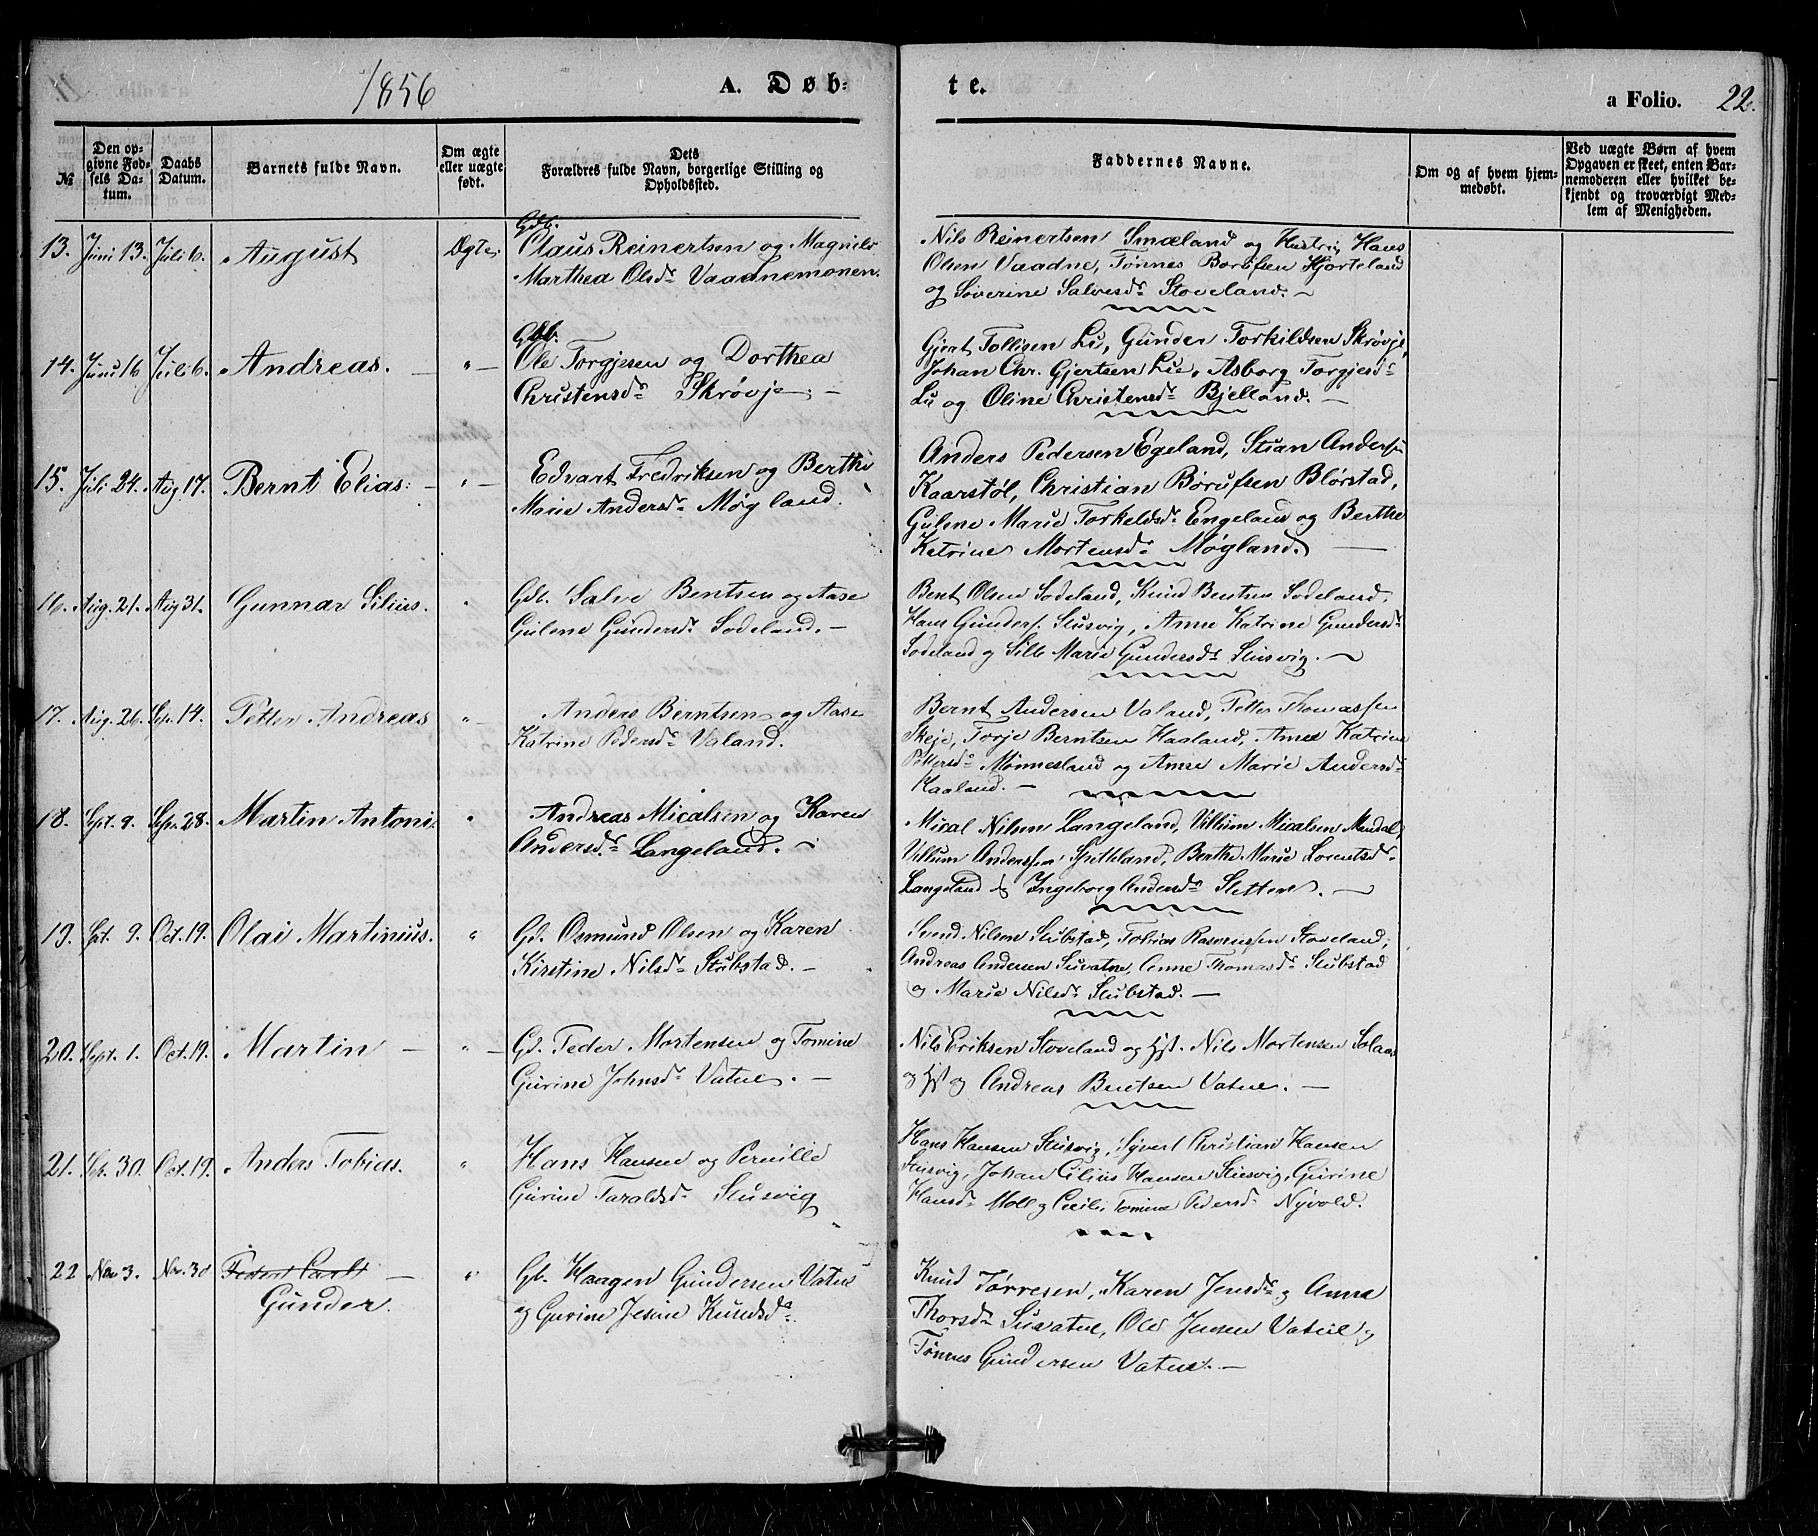 1856
A. Døb-
te.
a Folio. 22.
№
Den op-
givne Fød-
sels Da-
tum.
Daabs
Datum.
Barnets fulde Navn.
Om ægte
eller uægte
født.
Dets
Forældres fulde Navn, borgerlige Stilling og
Opholdssted.
Faddernes Navne.
Om og af hvem hjem-
medøbt.
Ved uægte Børn af hvem
Opgaven er skeet, enten Bar-
nemoderen eller hvilket be-
kjendt og troværdigt Med-
lem af Menigheden.
13. Juni 13. Juli 6. August Ægte
Gdb.
Claus Reinertsen og Magnild
Marthea Olsdr Vaadnemonen.
Nils Reinertsen Smæland og Hustri, Hans
Olsen Vaadne, Tønnes Børufsen Hjorteland
og Severine Salvesdr Stoveland. –
14. Juni 16 Juli 6. Andreas. – " –
Gdb.
Ole Torgjesen og Dorthea
Christensdr Skrøvje –
Gjert Tollisen Lu, Gunder Torkildsen Skrøvje,
Johan Chr. Gjertsen Lu, Asborg Torgjesdr
Lu og Oline Christensdr Bjelland. –
15. Juli 24. Aug 17. Bernt Elias. – " –
Edvart Fredriksen og Berthe
Marie Andersdr Møgland.
Anders Pedersen Egeland, Stian Andersen
Kaarstøl, Christian Børufsen Blørstad,
Gulene Marie Torkeldsdr Engeland og Berthe
Katrine Mortensdr Møgland. –
16. Aug. 21. Aug 31. Gunnar Silius. "
Gdb. Salve Bentsen og Aase
Gulene Gundersdr Sodeland. –
Bent Olsen Sodeland, Knud Bentsen Sodeland,
Hans Gunders. Slusvig, Anne Katrine Gundersdr
Sodeland og Sille Marie Gundersdr Slusvig. –
17. Aug. 26. Sep. 14. Petter Andreas "
Anders Berntsen og Aase
Katrine Pedersdr Valand.
Bernt Andersen Valand, Petter Thomassen
Skeje, Torje Berntsen Haaland, Anne Katrine
Pettersdr Mønnesland og Anne Marie Andersdr
Haaland. –
18. Sept. 9. Sep. 28. Martin Antoni. "
Andreas Micalsen og Karen
Andersdr Langeland. –
Mical Nilsen Langeland, Villum Micalsen Mandal,
Villum Anderssen Spitteland, Berthe Marie Lorentsdr
Langeland & Ingeborg Andersdr Sletten. –
19. Spt. 9. Oct. 19. Olai Martinius. "
Gd. Osmund Olsen og Karen
Kirstine Nilsdr Stubstad. –
Svend Nilsen Stubstad, Tobias Rasmussen Stoveland,
Andreas Andersen Suvatne, Anne Thomasdr Stubstad
og Marie Nilsdr Stubstad. –
20. Sept. 1. Oct. 19. Martin – " –
Gd. Peder Mortensen og Tomine
Gurine Johnsdr Vatne. –
Nils Eriksen Stoveland og Hst. Nils Mortensen Solaas
og Hst og Andreas Bentsen Vatne. –
21. Sep. 30. Oct. 19. Anders Tobias. "
Hans Hansen og Pernille
Gurine Taraldsdr Slusvig
Hans Hansen Slusvig, Syvert Christian Hansen
Slusvig, Johan Cilius Hansen Slusvig, Gurine
Hansdr Moll og Cecilie Tomine Pedersdr Nyvold.
22 Nov 3. Nov. 30 –
Gunder. "
Gb. Haagen Gundersen Vatne
og Gurine Jesine Knudsdr.
Knud Tørresen, Karen Jensdr og Anna
Thorsdr Suvatne, Ole Jensen Vatne og
Tønnes Gundersen Vatne. –